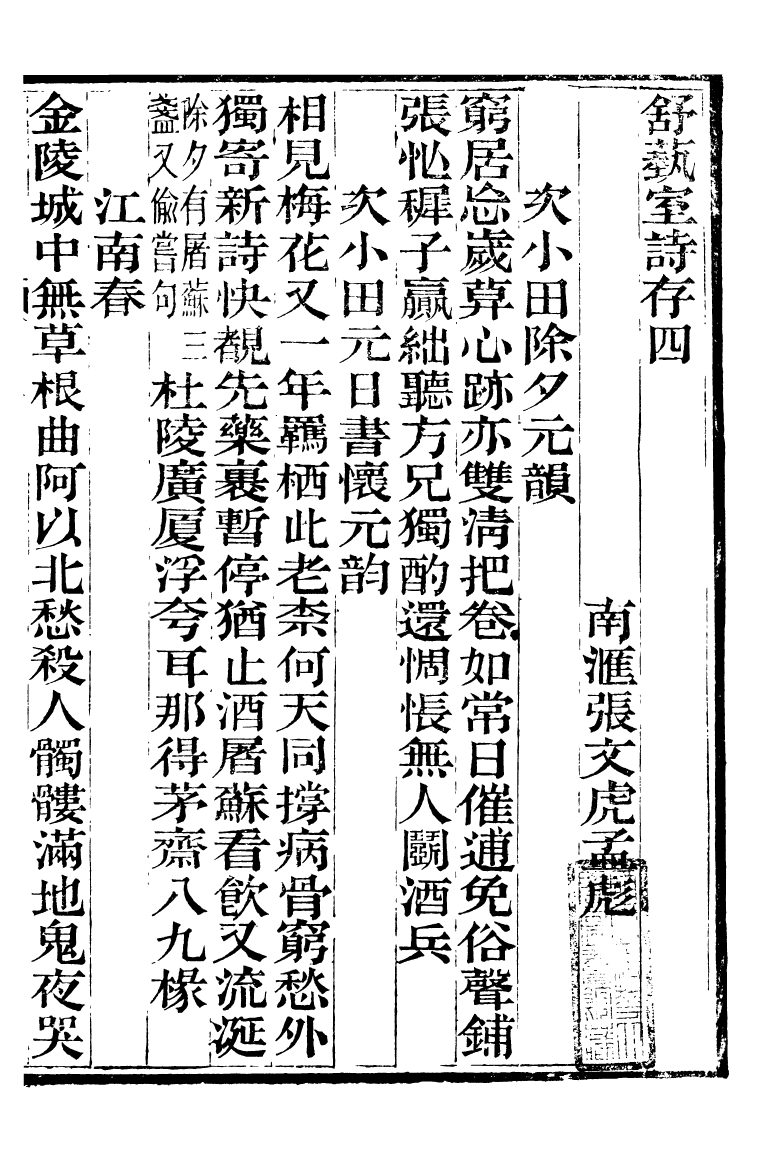 舒藝室詩存四
南滙張文虎孟彪
次小田除夕元韻
窮居忩歲算心跡亦雙淸把卷如常日催逋免俗聲鋪
張忪穉子贏絀聽方兄獨酌還惆悵無人鬭酒兵
次小田元日書懷元韵
相見梅花又一年羈栖此老柰何天同撐病骨窮愁外
獨寄新詩快覩先藥裹暫停猶止酒屠蘇看飲又流涎
除夕有屠蘇三
盞又偸嘗句
杜陵廣厦浮夸耳那得茅齋八九椽
江南春
金陵城中無草根曲阿以北愁殺人髑髏滿地鬼夜哭